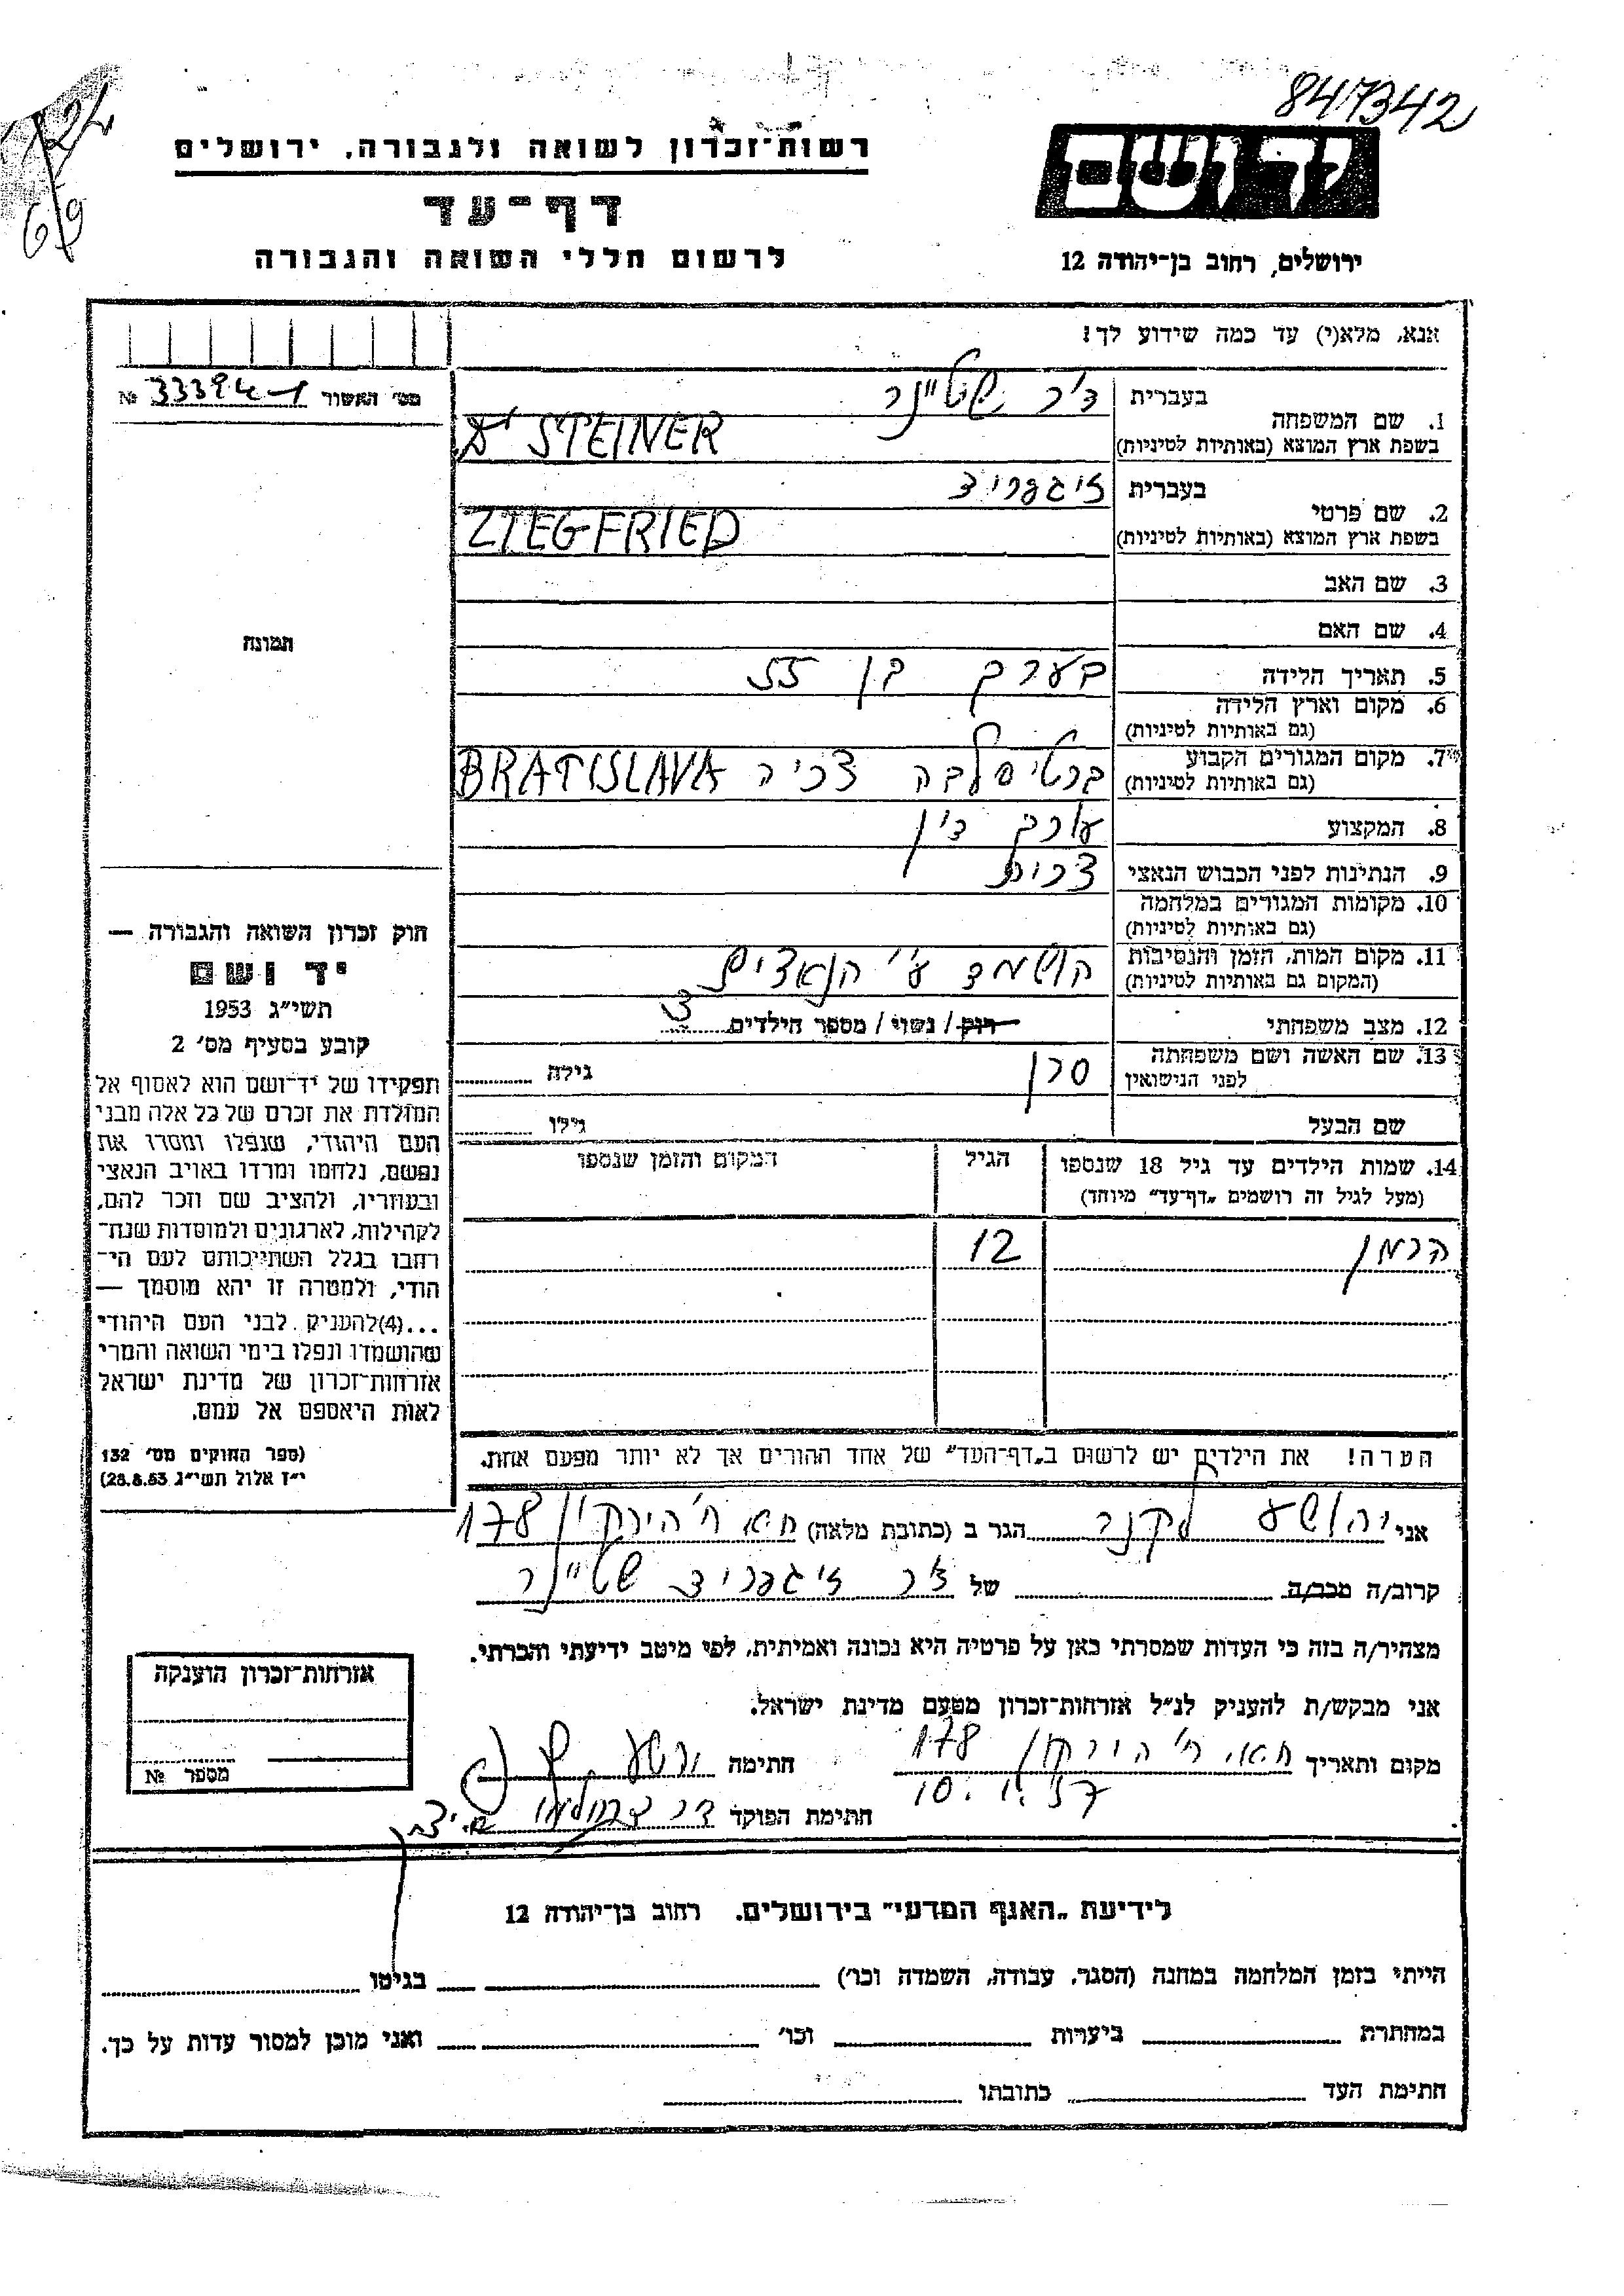 847342
רשות־זכרון לשואה ולגבורה, ירושלים
דף־עד
לרשום חללי השואה והגבורה
יד ושם
ירושלים, רחוב בן־יהודה 12
אנא, מלא(י) עד כמה שידוע לך!
מס׳ האשור 33394-1 №
1. שם המשפחה
בעברית ד״ר שטיינר
בשפת ארץ המוצא (באותיות לטיניות) STEINER
2. שם פרטי
בעברית זיגפריד
בשפת ארץ המוצא (באותיות לטיניות) ZIEGFRIED
3. שם האב
4. שם האם
תמונה
5. תאריך הלידה בערך בן 55
6. מקום וארץ הלידה
(גם באותיות לטיניות)
7. מקום המגורים הקבוע ברטיסלבה צכיה BRATISLAVA
(גם באותיות לטיניות)
8. המקצוע עורך דין
9. הנתינות לפני הכבוש הנאצי צכית
10. מקומות המגורים במלחמה
(גם באותיות לטיניות)
11. מקום המות, הזמן והנסיבות הושמד ע״י הנאצים
(המקום גם באותיות לטיניות)
12. מצב משפחתי רוק / נשוי / מספר הילדים
13. שם האשה ושם משפחתה
לפני הנישואין גילה
שם הבעל גילו
14. שמות הילדים עד גיל 18 שנספו הגיל המקום והזמן שנספו
(מעל לגיל זה רושמים „דף־עד״ מיוחד)
הרמן 12
הערה! את הילדים יש לרשום ב„דף־העד״ של אחד ההורים אך לא יותר מפעם אחת.
חוק זכרון השואה והגבורה —
יד ושם
תשי״ג 1953
קובע בסעיף מס׳ 2
תפקידו של יד־ושם הוא לאסוף אל
המולדת את זכרם של כל אלה מבני
העם היהודי, שנפלו ומסרו את
נפשם, נלחמו ומרדו באויב הנאצי
ובעוזריו, ולהציב שם וזכר להם,
לקהילות, לארגונים ולמוסדות שנח־
רבו בגלל השתייכותם לעם הי־
הודי, ולמטרה זו יהא מוסמך —
...(4) להעניק לבני העם היהודי
שהושמדו ונפלו בימי השואה והמרי
אזרחות־זכרון של מדינת ישראל
לאות היאספם אל עמם.
(ספר החוקים מס׳ 132
י״ז אלול תשי״ג 28.8.53)
אני יהושע לקנר הגר ב (כתובת מלאה) ת״א ר׳ הירקון 178
קרוב/ה מכר/ה של ד״ר זיגפריד שטיינר
מצהיר/ה בזה כי העדות שמסרתי כאן על פרטיה היא נכונה ואמיתית, לפי מיטב ידיעתי והכרתי.
אני מבקש/ת להעניק לנ״ל אזרחות־זכרון מטעם מדינת ישראל.
מקום ותאריך ת״א, ר׳ הירקון 178 חתימה
10.1.57
חתימת הפוקד
אזרחות־זכרון הוענקה
מספר №
לידיעת „האגף המדעי״ בירושלים, רחוב בן־יהודה 12
הייתי בזמן המלחמה במחנה (הסגר, עבודה, השמדה וכו׳) בגיטו
במחתרת ביערות וכו׳ ואני מוכן למסור עדות על כך.
חתימת העד כתובתו